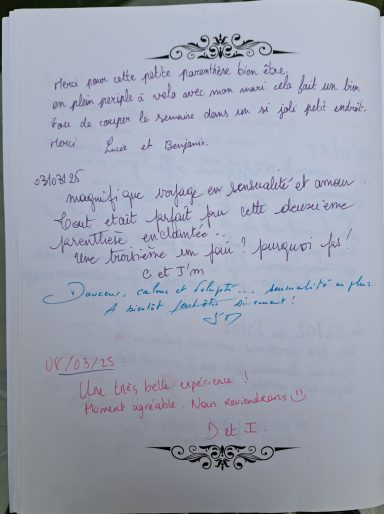 Merci pour cette petite parenthèse bien être
en plein périple à vélo avec mon mari cela fait un bien
fou de couper la semaine dans un si joli petit endroit.
Merci Lucie et Benjamin.
03/03/25
magnifique voyage en sensualité et amour...
tout etait parfait pour cette deuxieme
parenthèse enchantée...
une troisième un jour? pourquoi pas!
C et J'm
Douceur, calme et Volupté... sensualité en plus.
A bientôt sûrement!
J'M
08/03/25
Une très belle expérience!
Moment agréable. Nous reviendrons
D et I.